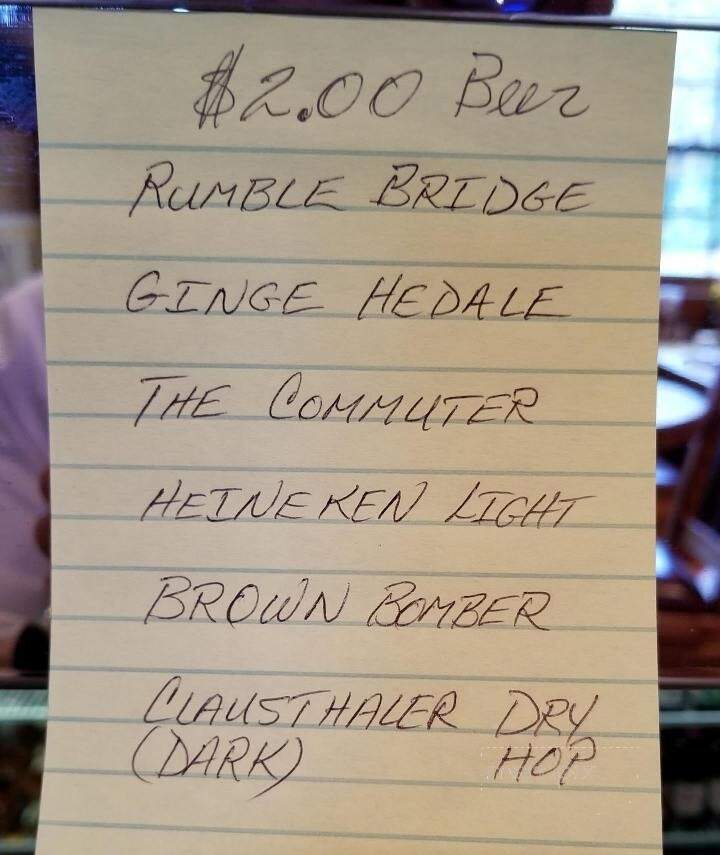 $2.00 Beer
RUMBLE BRIDGE
GINGE HEDALE
THE COMMUTER
HEINEKEN LIGHT
BROWN BOMBER
CLAUSTHALER DRY
(DARK) HOP